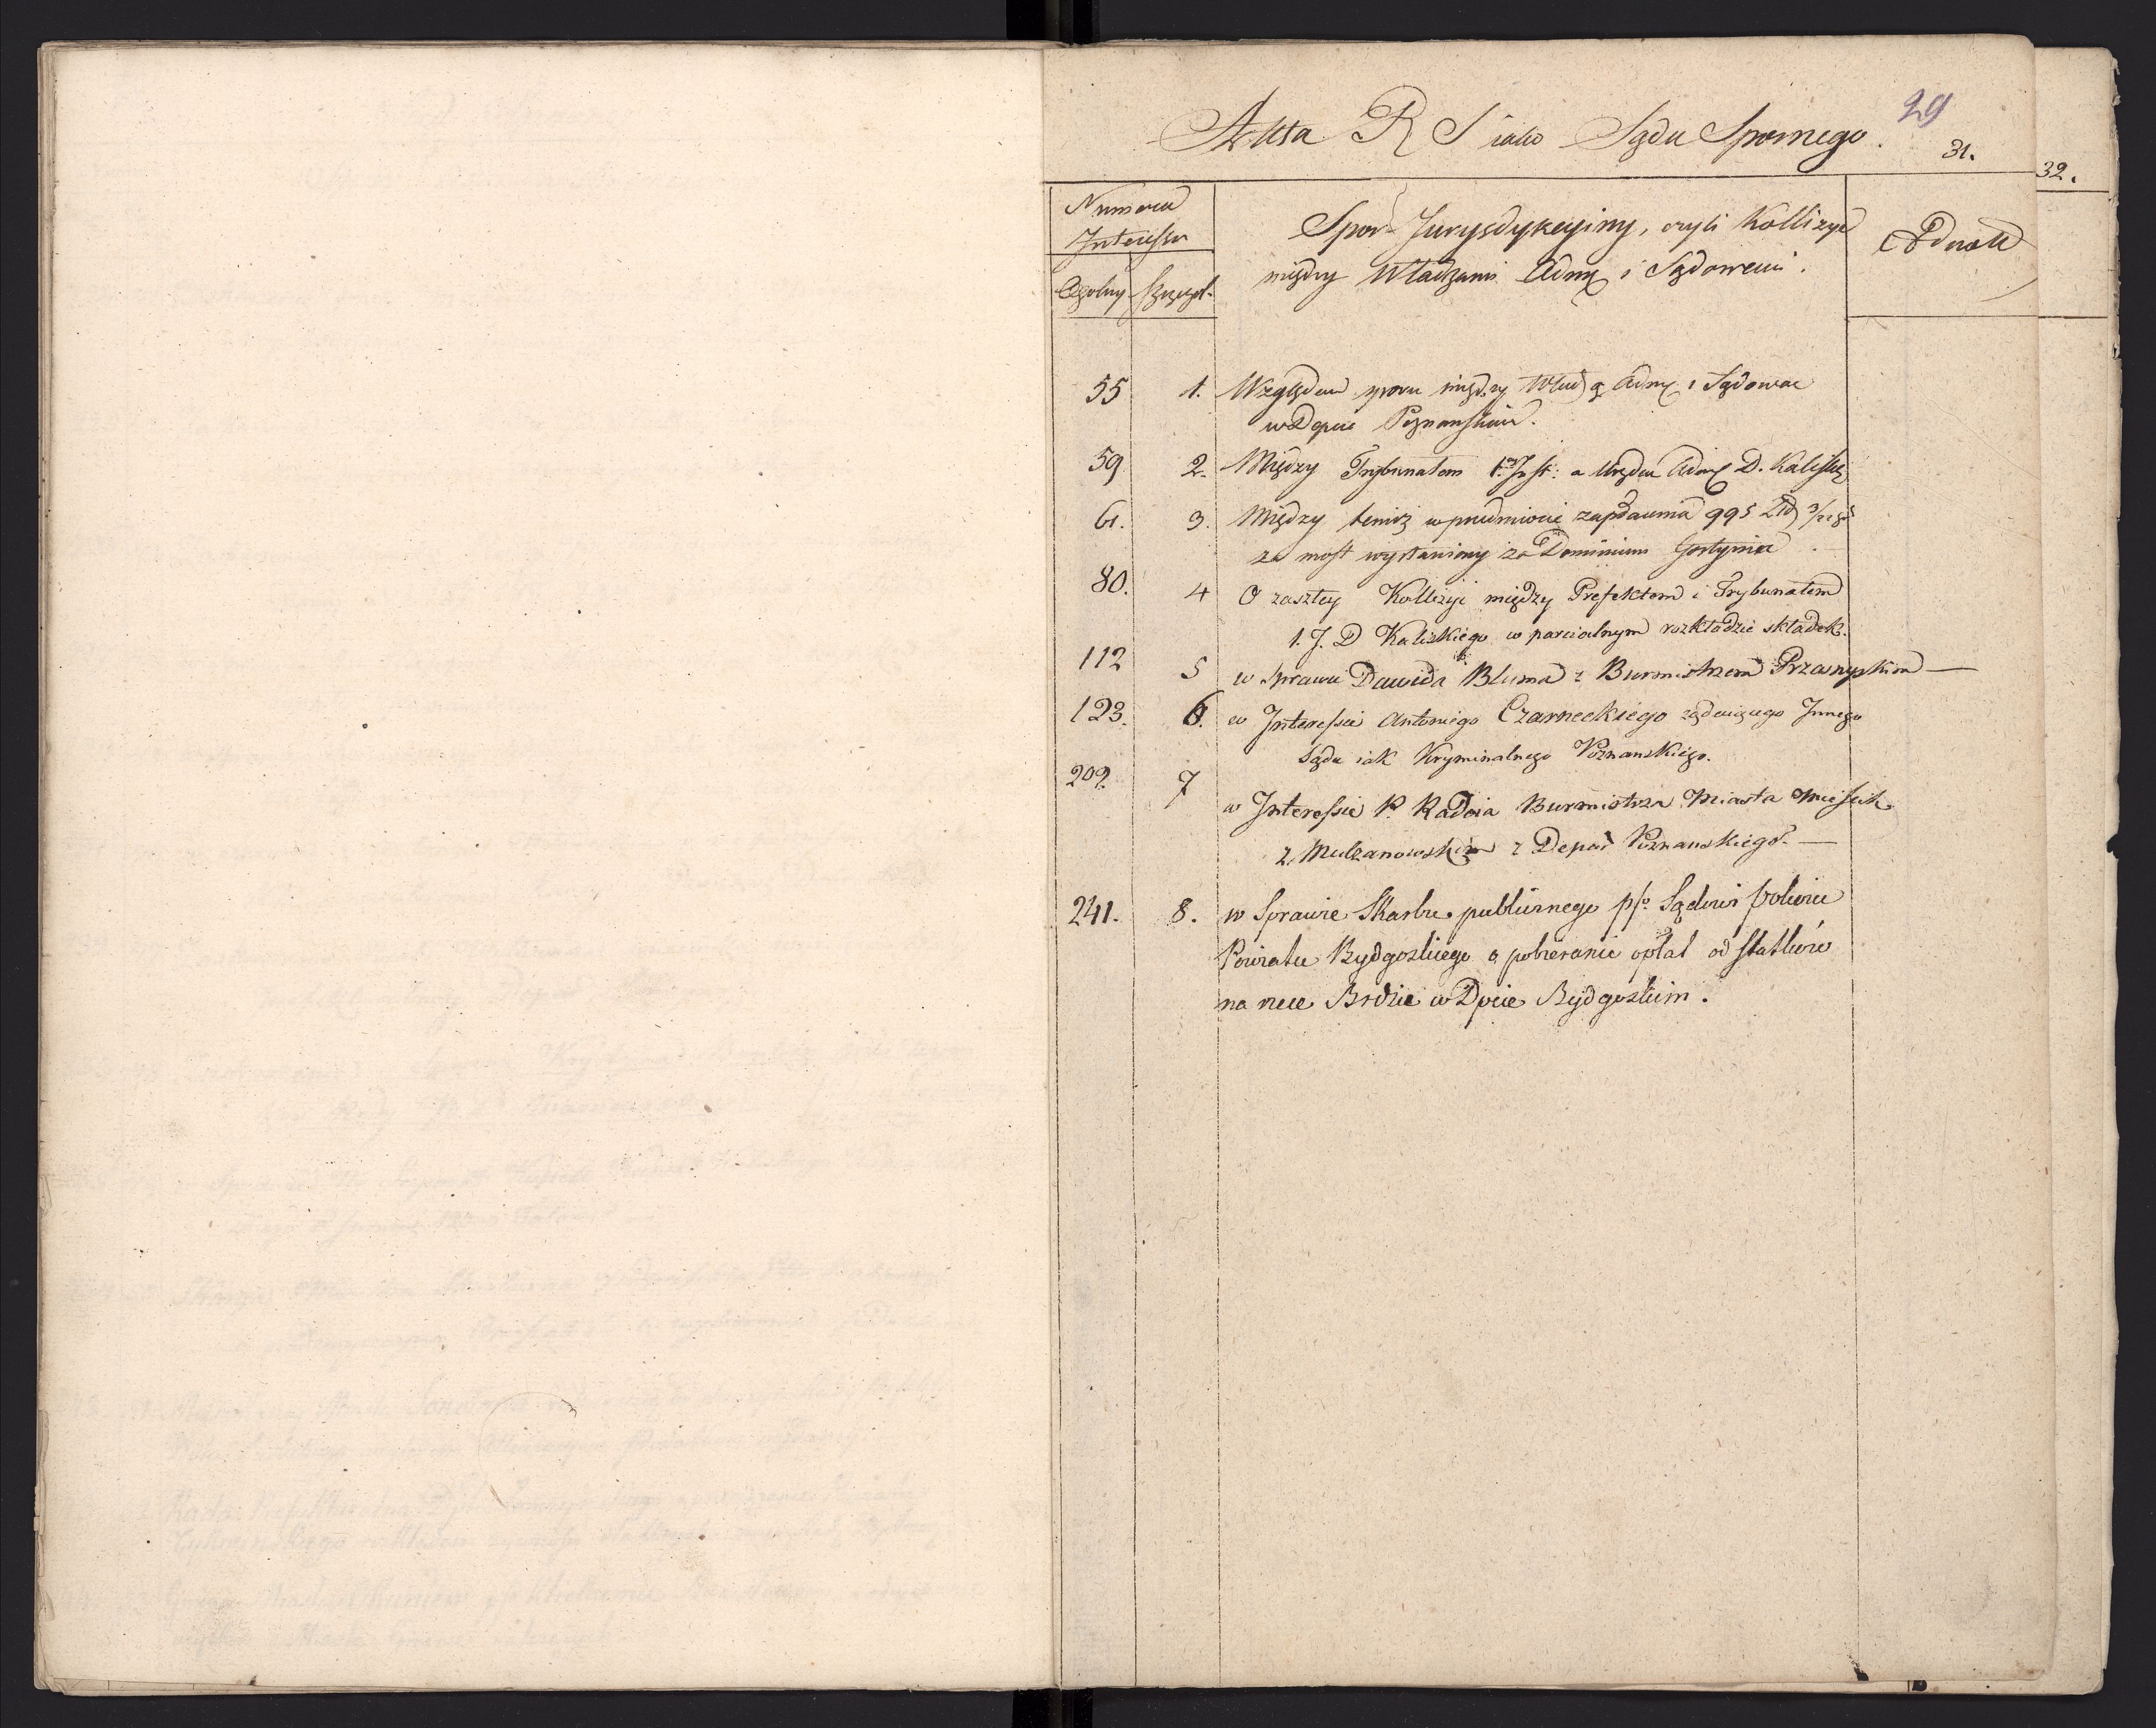 29
Akta R S iako Sądu Spornego.
31.
32.
Numera
Interessu
Ogolny Szczegol.
Spor Jurysdykcyiny, czyli Kollizye
między Władzami Admx i Sądowemi.
55 1. Względem sporu między Władzą Admx i Sądowa
w Depcie Poznanskim.
59 2. Między Trybunałem 1. Inst: a Urzędem Admx D. Kalisk
61. 3. Między temiż w przedmiocie zapłacenia 995
za most wystawiony za Dominium Gostynia
80. 4 O zaszłey Kollizyi między Prefektem i Trybunałem
1. J. D Kaliskiego w parcialnym rozkładzie składek.
112 5 w Sprawie Dawida Bluma z Burmistrzem Przasnyskim —
123. 6. w Interessie Antoniego Czarneckiego żądaiącego Innego
Sądu iak Kryminalnego Poznanskiego.
209. 7 w Interessie P. Radoia Burmistrza Miasta
z Mulzanowskim z Depar Poznanskiego. —
241. 8. w Sprawie Skarbu publicznego pso Sądowi
Powiatu Bydgoskiego o pobieranie opłat od statków
na rzece Brdzie w Dpcie Bydgoskim.